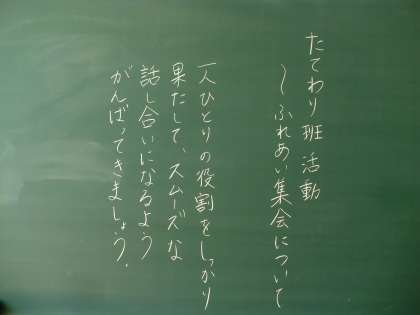 たてわり班活動
～ふれあい集会について
一人ひとりの役割をしっかり
果たして、スムーズな
話し合いになるよう
がんばってきましょう。